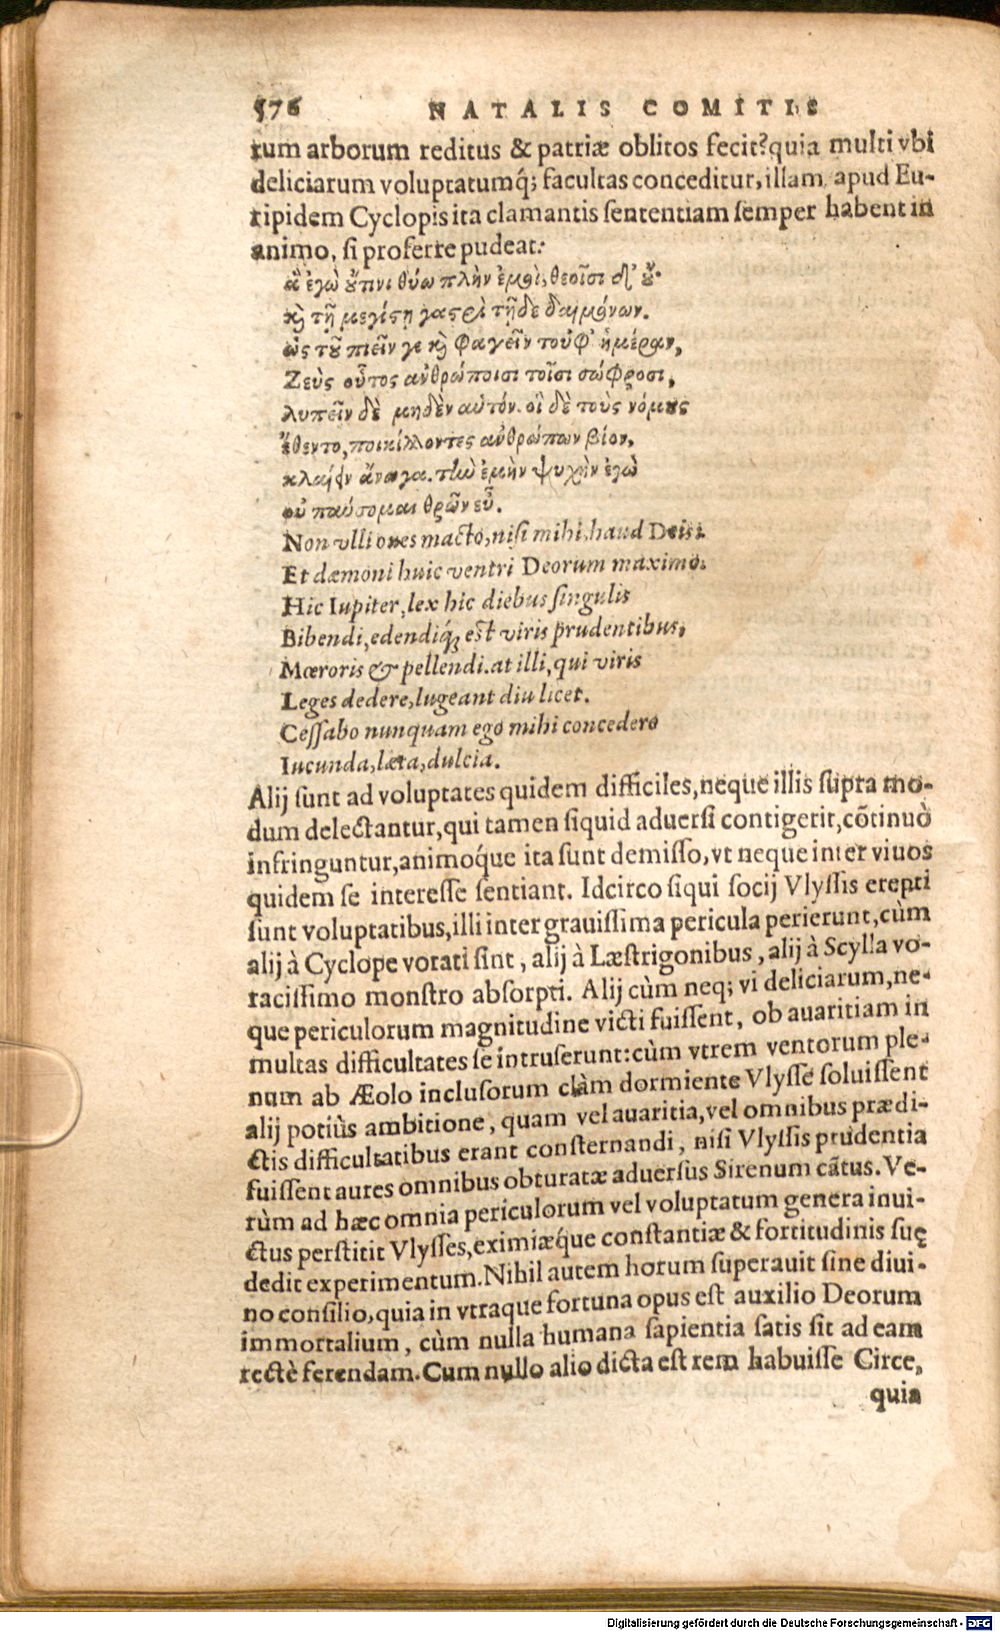 576 NATALIS COMITIS
rum arborum reditus & patriæ oblitos fecit? quia multi vbi
deliciarum voluptatumq́; facultas conceditur, illam apud Eu-
ripidem Cyclopis ita clamantis ſententiam ſemper habent in
animo, ſi proferre pudeat:
ἃ ἐγὼ οὔτινι θύω πλὴν ἐμοὶ, θεοῖσι δ' οὔ.
καὶ τῇ μεγίστῃ γαστρὶ τῇδε δαιμόνων.
ὡς τοῦ πιεῖν γε καὶ φαγεῖν τοὐφ' ἡμέραν,
Ζεὺς οὗτος ἀνθρώποισι τοῖσι σώφροσι,
λυπεῖν δὲ μηδὲν αὑτόν. οἳ δὲ τοὺς νόμους
ἔθεντο, ποικίλλοντες ἀνθρώπων βίον,
κλαίειν ἄνωγα. τὴν ἐμὴν ψυχὴν ἐγὼ
οὐ παύσομαι δρῶν εὖ.
Non vlli oues macto, niſi mihi, haud Deis:
Et dæmoni huic ventri Deorum maximo.
Hic Iupiter, lex hic diebus ſingulis
Bibendi, edendiq́; est viris prudentibus,
Mœroris & pellendi. at illi, qui viris
Leges dedere, lugeant diu licet.
Ceſſabo nunquam ego mihi concedere
Iucunda, læta, dulcia.
Alij ſunt ad voluptates quidem difficiles, neque illis ſupra mo-
dum delectantur, qui tamen ſiquid aduerſi contigerit, cõtinuò
infringuntur, animoq́ue ita ſunt demiſſo, vt neque inter viuos
quidem ſe intereſſe ſentiant. Idcirco ſiqui ſocij Vlyſſis erepti
ſunt voluptatibus, illi inter grauiſſima pericula perierunt, cùm
alij à Cyclope vorati ſint, alij à Læſtrigonibus, alij à Scylla vo-
raciſſimo monſtro abſorpti. Alij cùm neq; vi deliciarum, ne-
que periculorum magnitudine victi fuiſſent, ob auaritiam in
multas difficultates ſe intruſerunt: cùm vtrem ventorum ple-
num ab Æolo incluſorum clàm dormiente Vlyſſe ſoluiſſent
alij potiùs ambitione, quam vel auaritia, vel omnibus prædi-
ctis difficultatibus erant conſternandi, niſi Vlyſſis prudentia
fuiſſent aures omnibus obturatæ aduerſus Sirenum cãtus. Ve-
rùm ad hæc omnia periculorum vel voluptatum genera inui-
ctus perſtitit Vlyſſes, eximiæq́ue conſtantiæ & fortitudinis ſuę
dedit experimentum. Nihil autem horum ſuperauit ſine diui-
no conſilio, quia in vtraque fortuna opus eſt auxilio Deorum
immortalium, cùm nulla humana ſapientia ſatis ſit ad eam
rectè ferendam. Cum nullo alio dicta eſt rem habuiſſe Circe,
quia
Digitalisierung gefördert durch die Deutsche Forschungsgemeinschaft - DFG